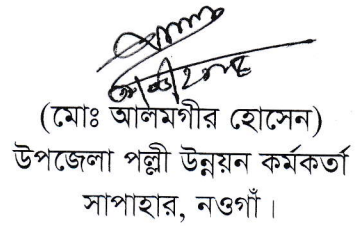 (মোঃ আলমগীর হোসেন)
উপজেলা পল্লী উন্নয়ন কর্মকর্তা
সাপাহার, নওগাঁ।